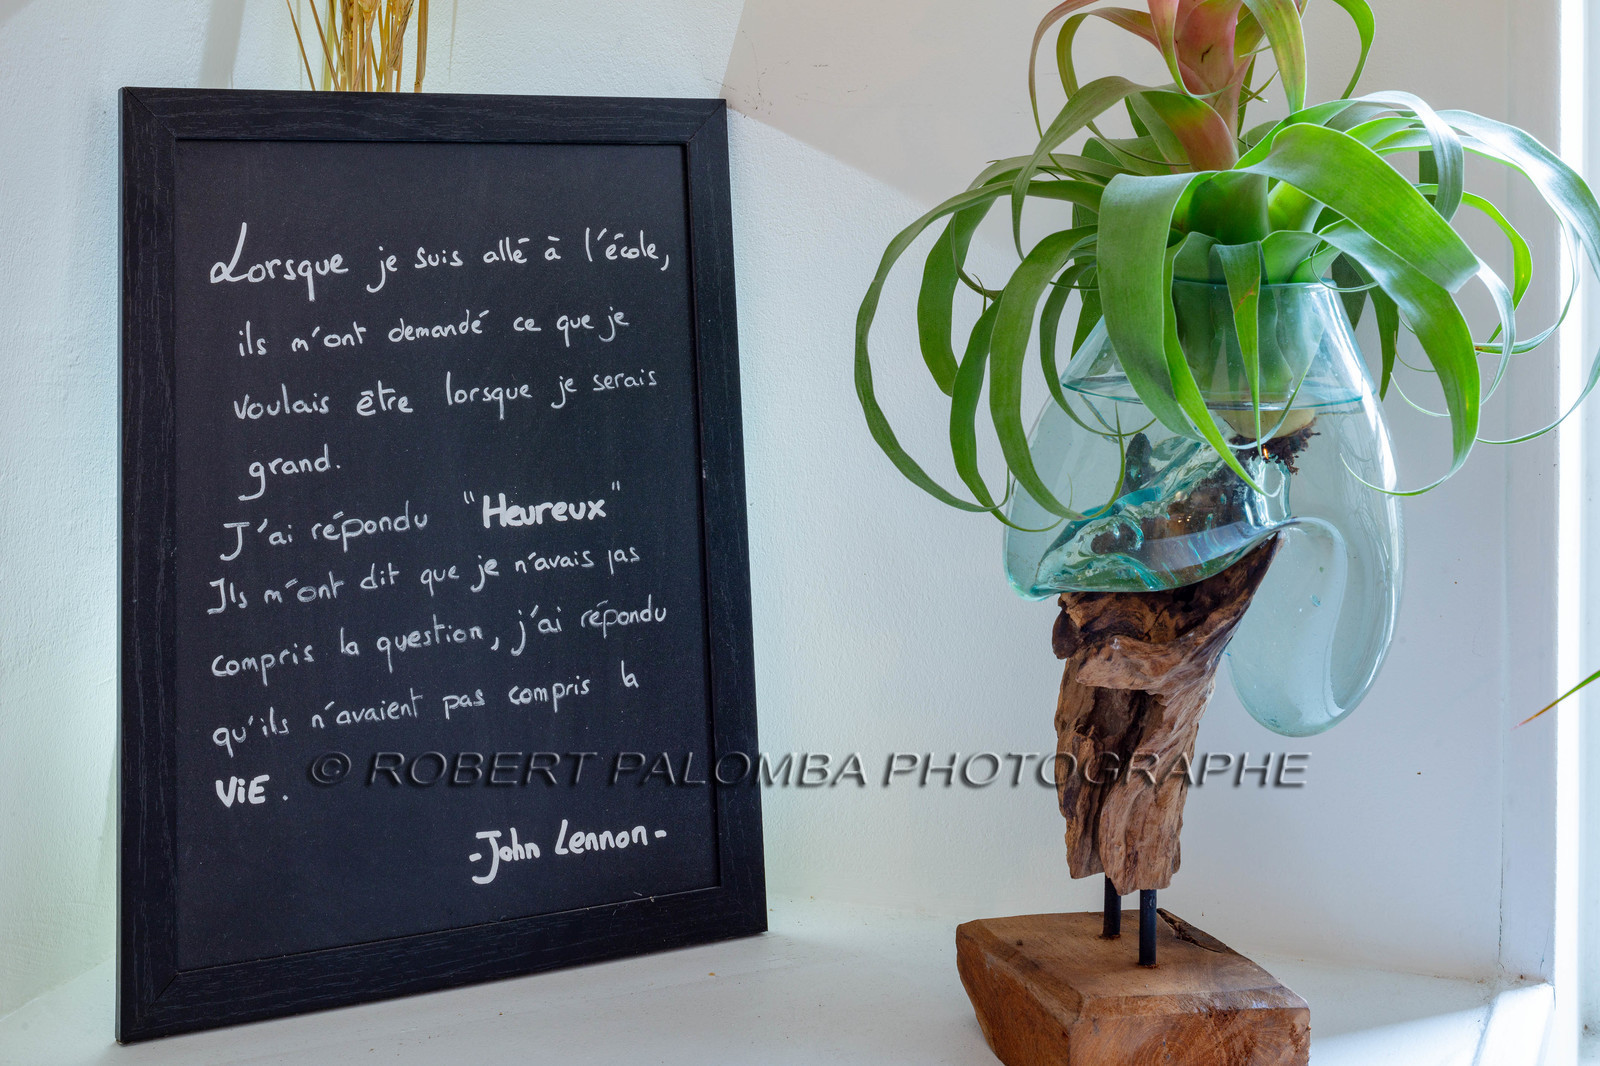 Lorsque je suis allé à l'école,
ils m'ont demandé ce que je
voulais être lorsque je serais
grand.
J'ai répondu "Heureux"
Ils m'ont dit que je n'avais pas
compris la question, j'ai répondu
qu'ils n'avaient pas compris la
ViE.
© ROBERT PALOMBA PHOTOGRAPHE
-John Lennon-